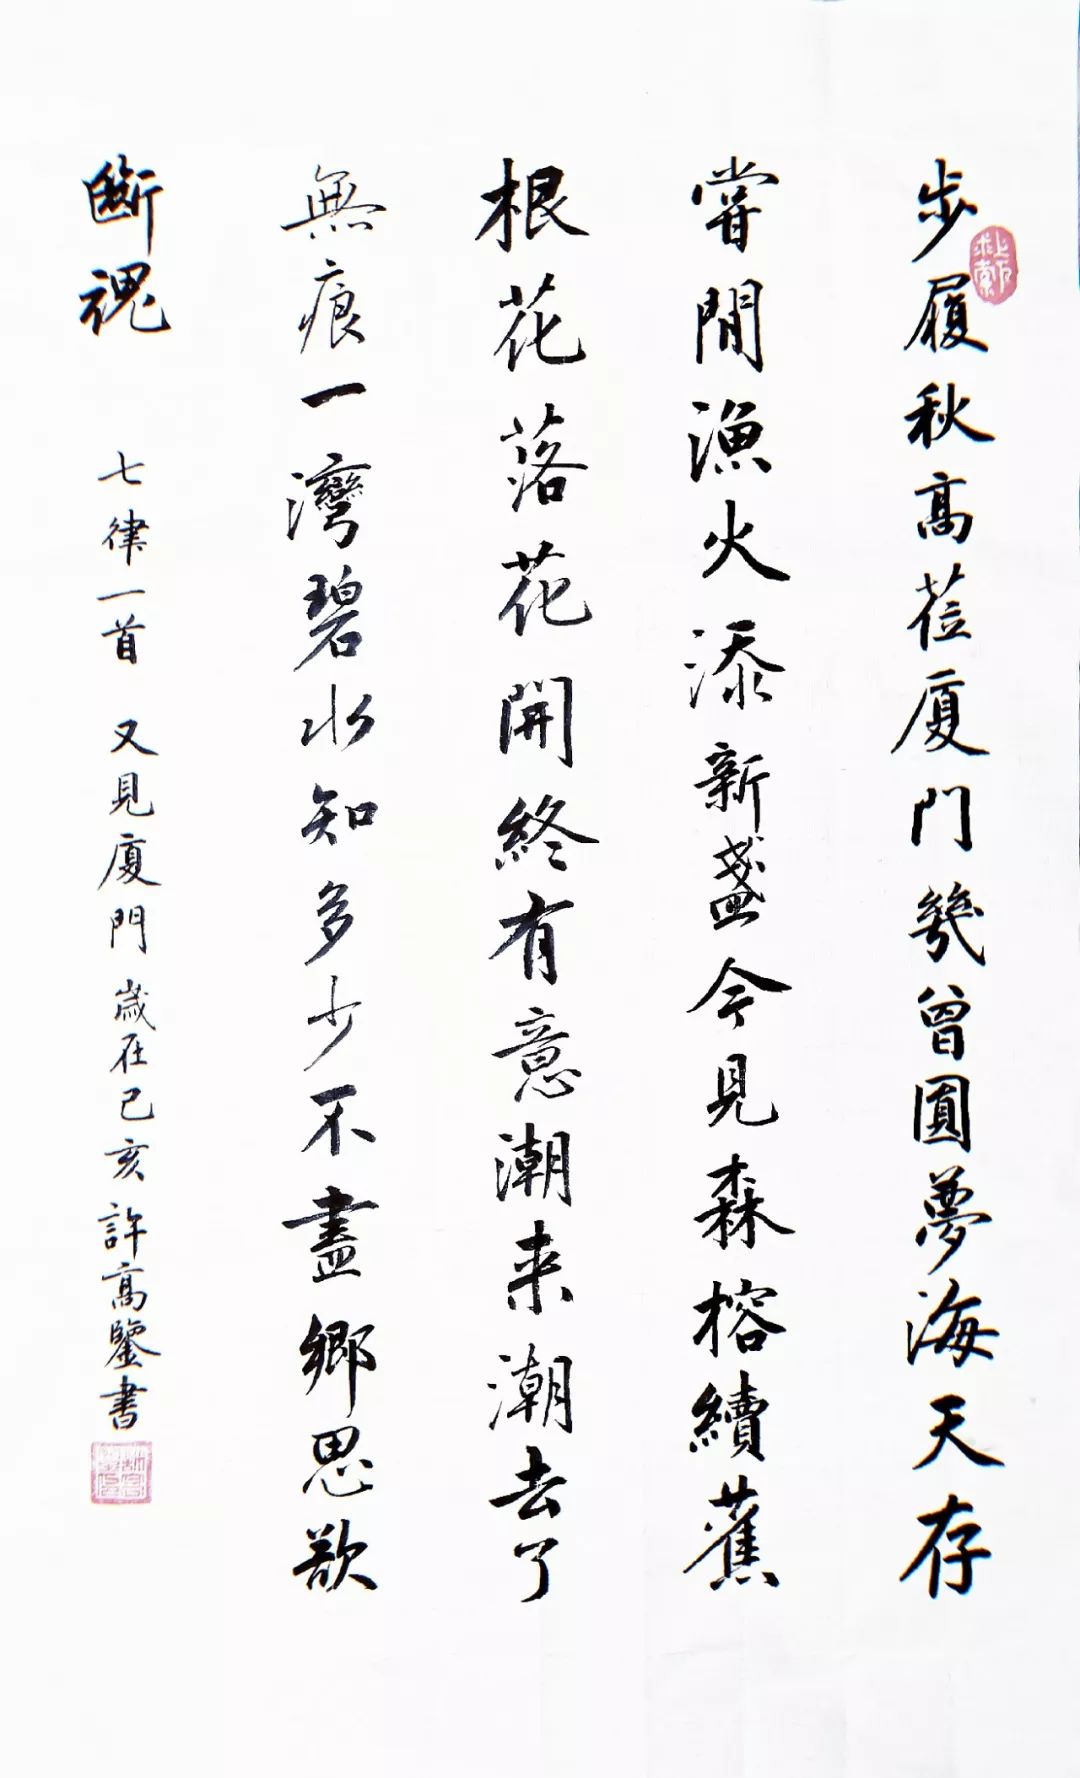 步履秋高莅厦门幾曾圓夢海天存
嘗聞漁火添新盞今見森榕續舊
根花落花開終有意潮来潮去了
無痕一灣碧水知多少不盡鄉思欲
斷魂 七律一首 又見廈門 歲在己亥 許高鑒書